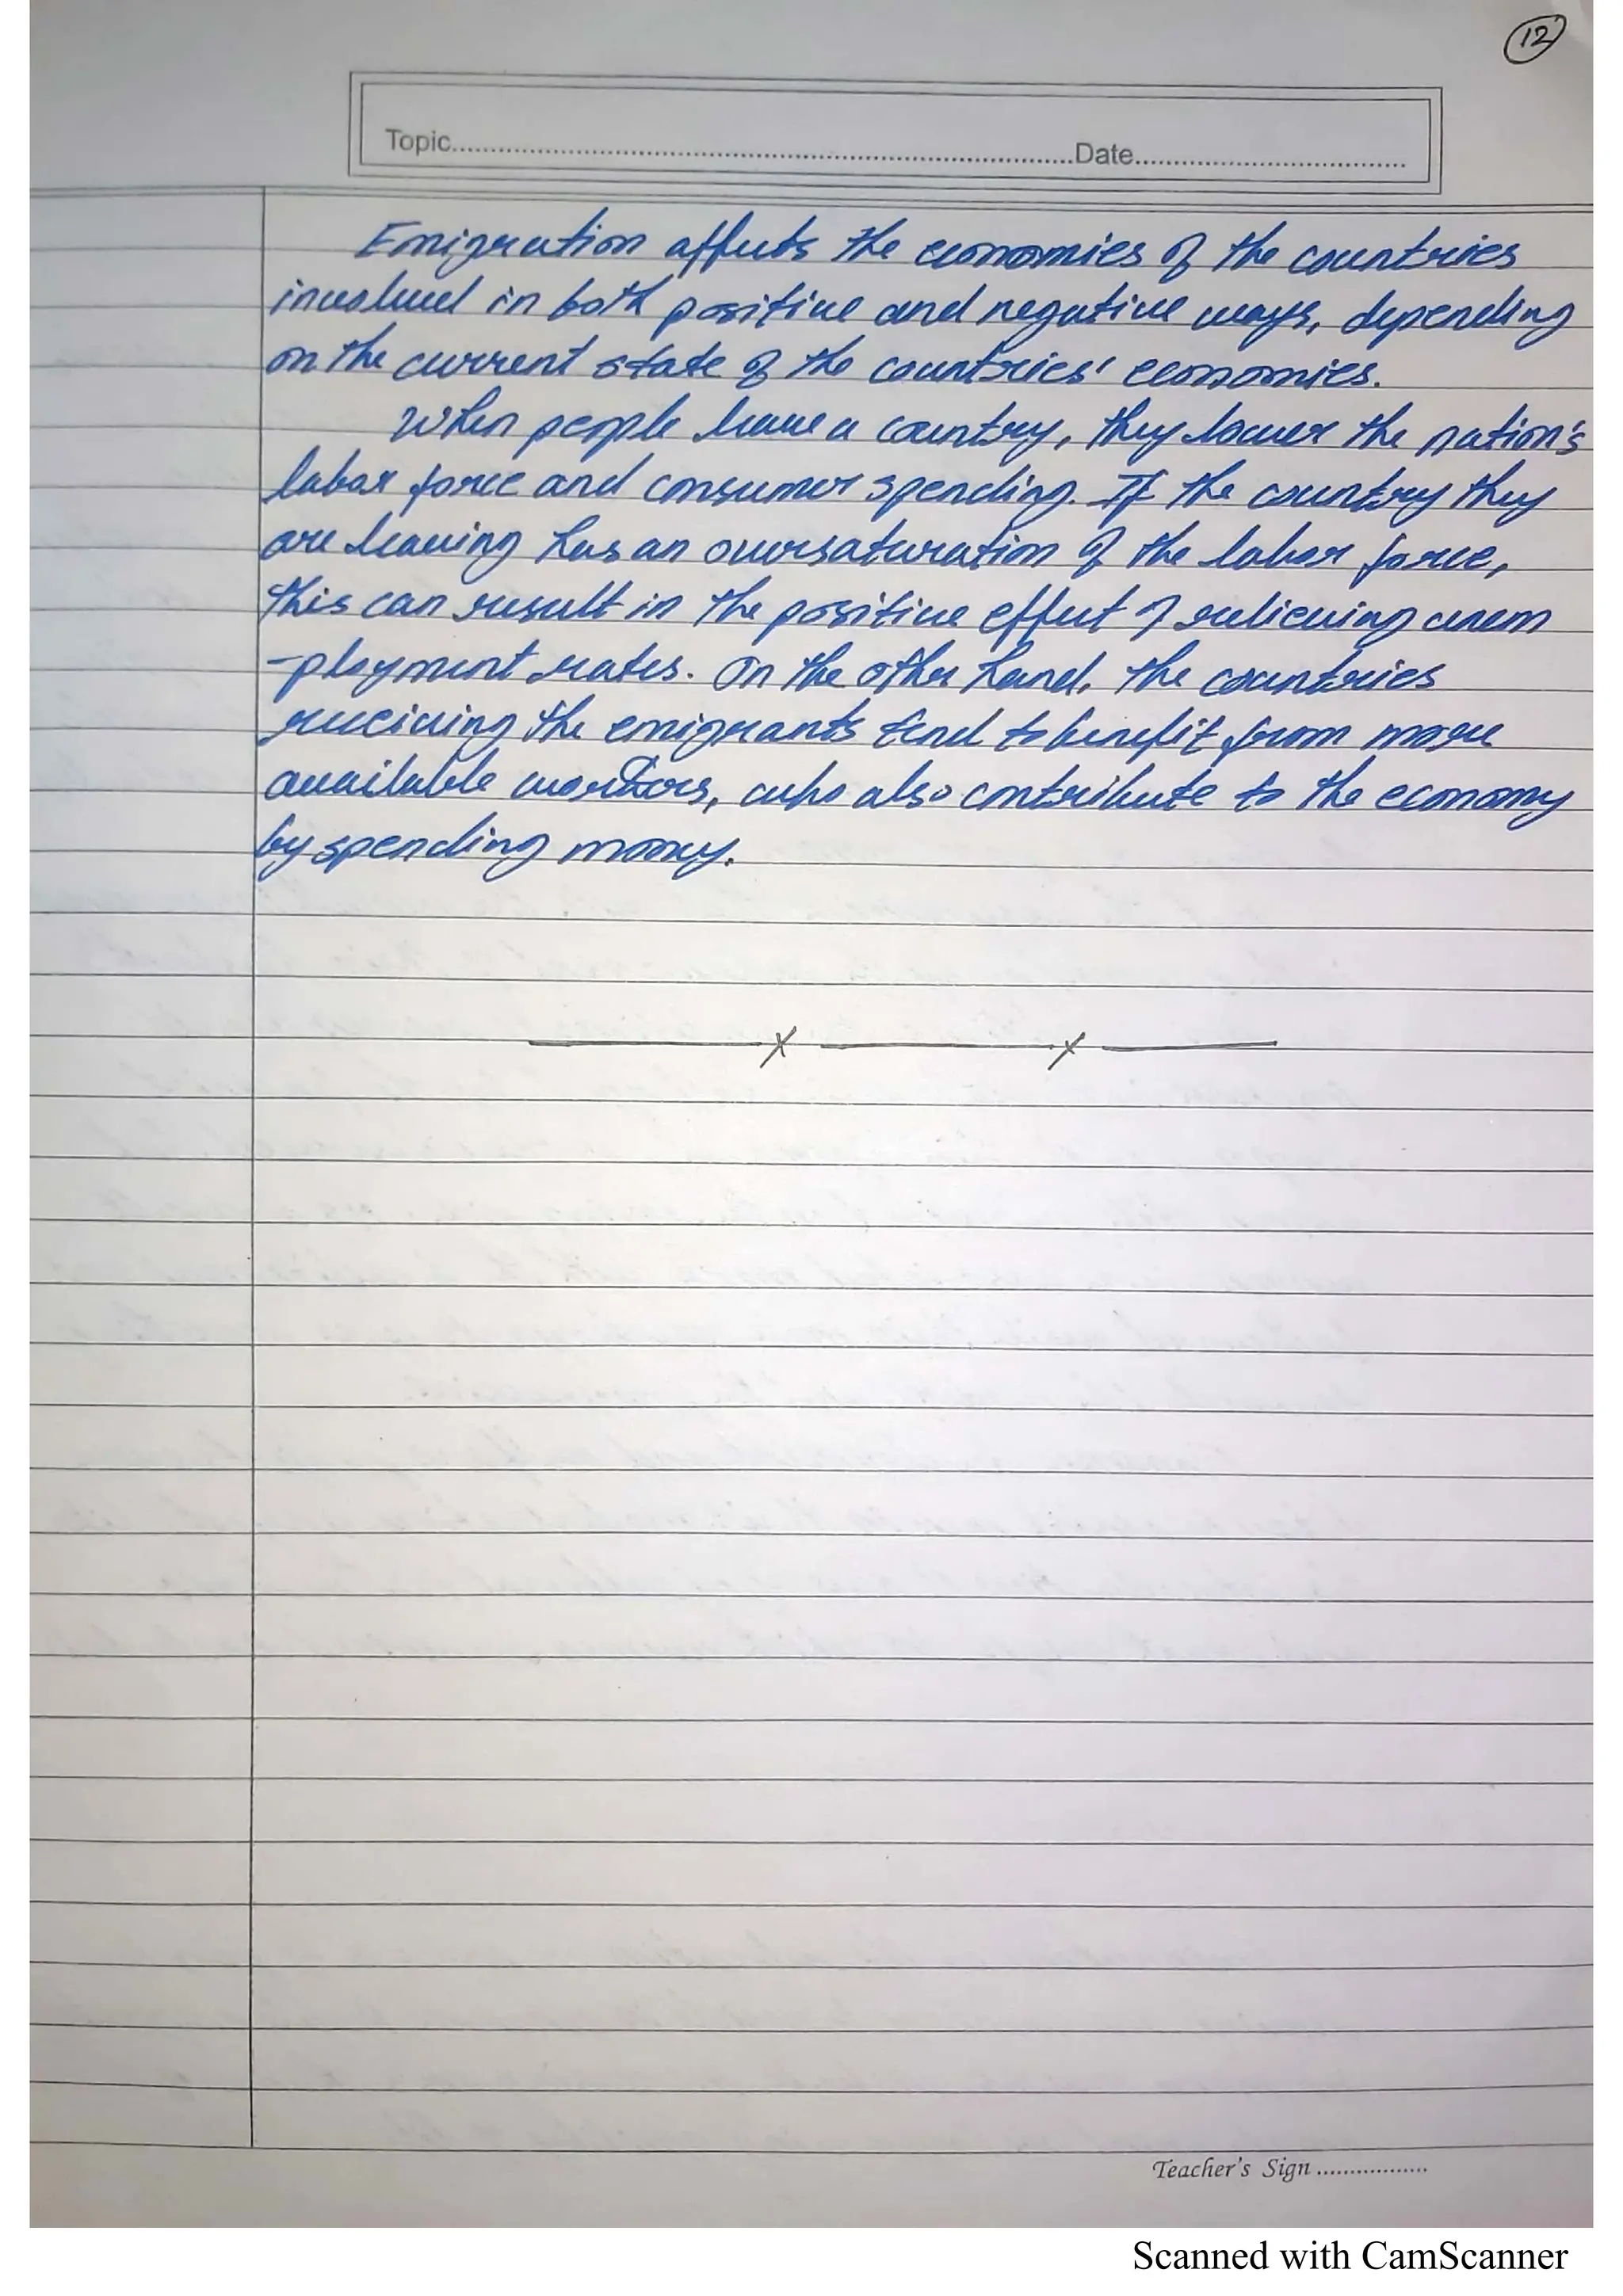 12
Topic..........Date..........
Emigration affects the economies of the countries
involved in both positive and negative ways, depending
on the current state of the countries' economies.
When people leave a country, they lower the nation's
labor force and consumer spending. If the country they
are leaving has an oversaturation of the labor force,
this can result in the positive effect of relieving unem
-ployment rates. On the other hand, the countries
receiving the emigrants tend to benefit from more
available workers, who also contribute to the economy
by spending money.
x x
Teacher's Sign..........
Scanned with CamScanner